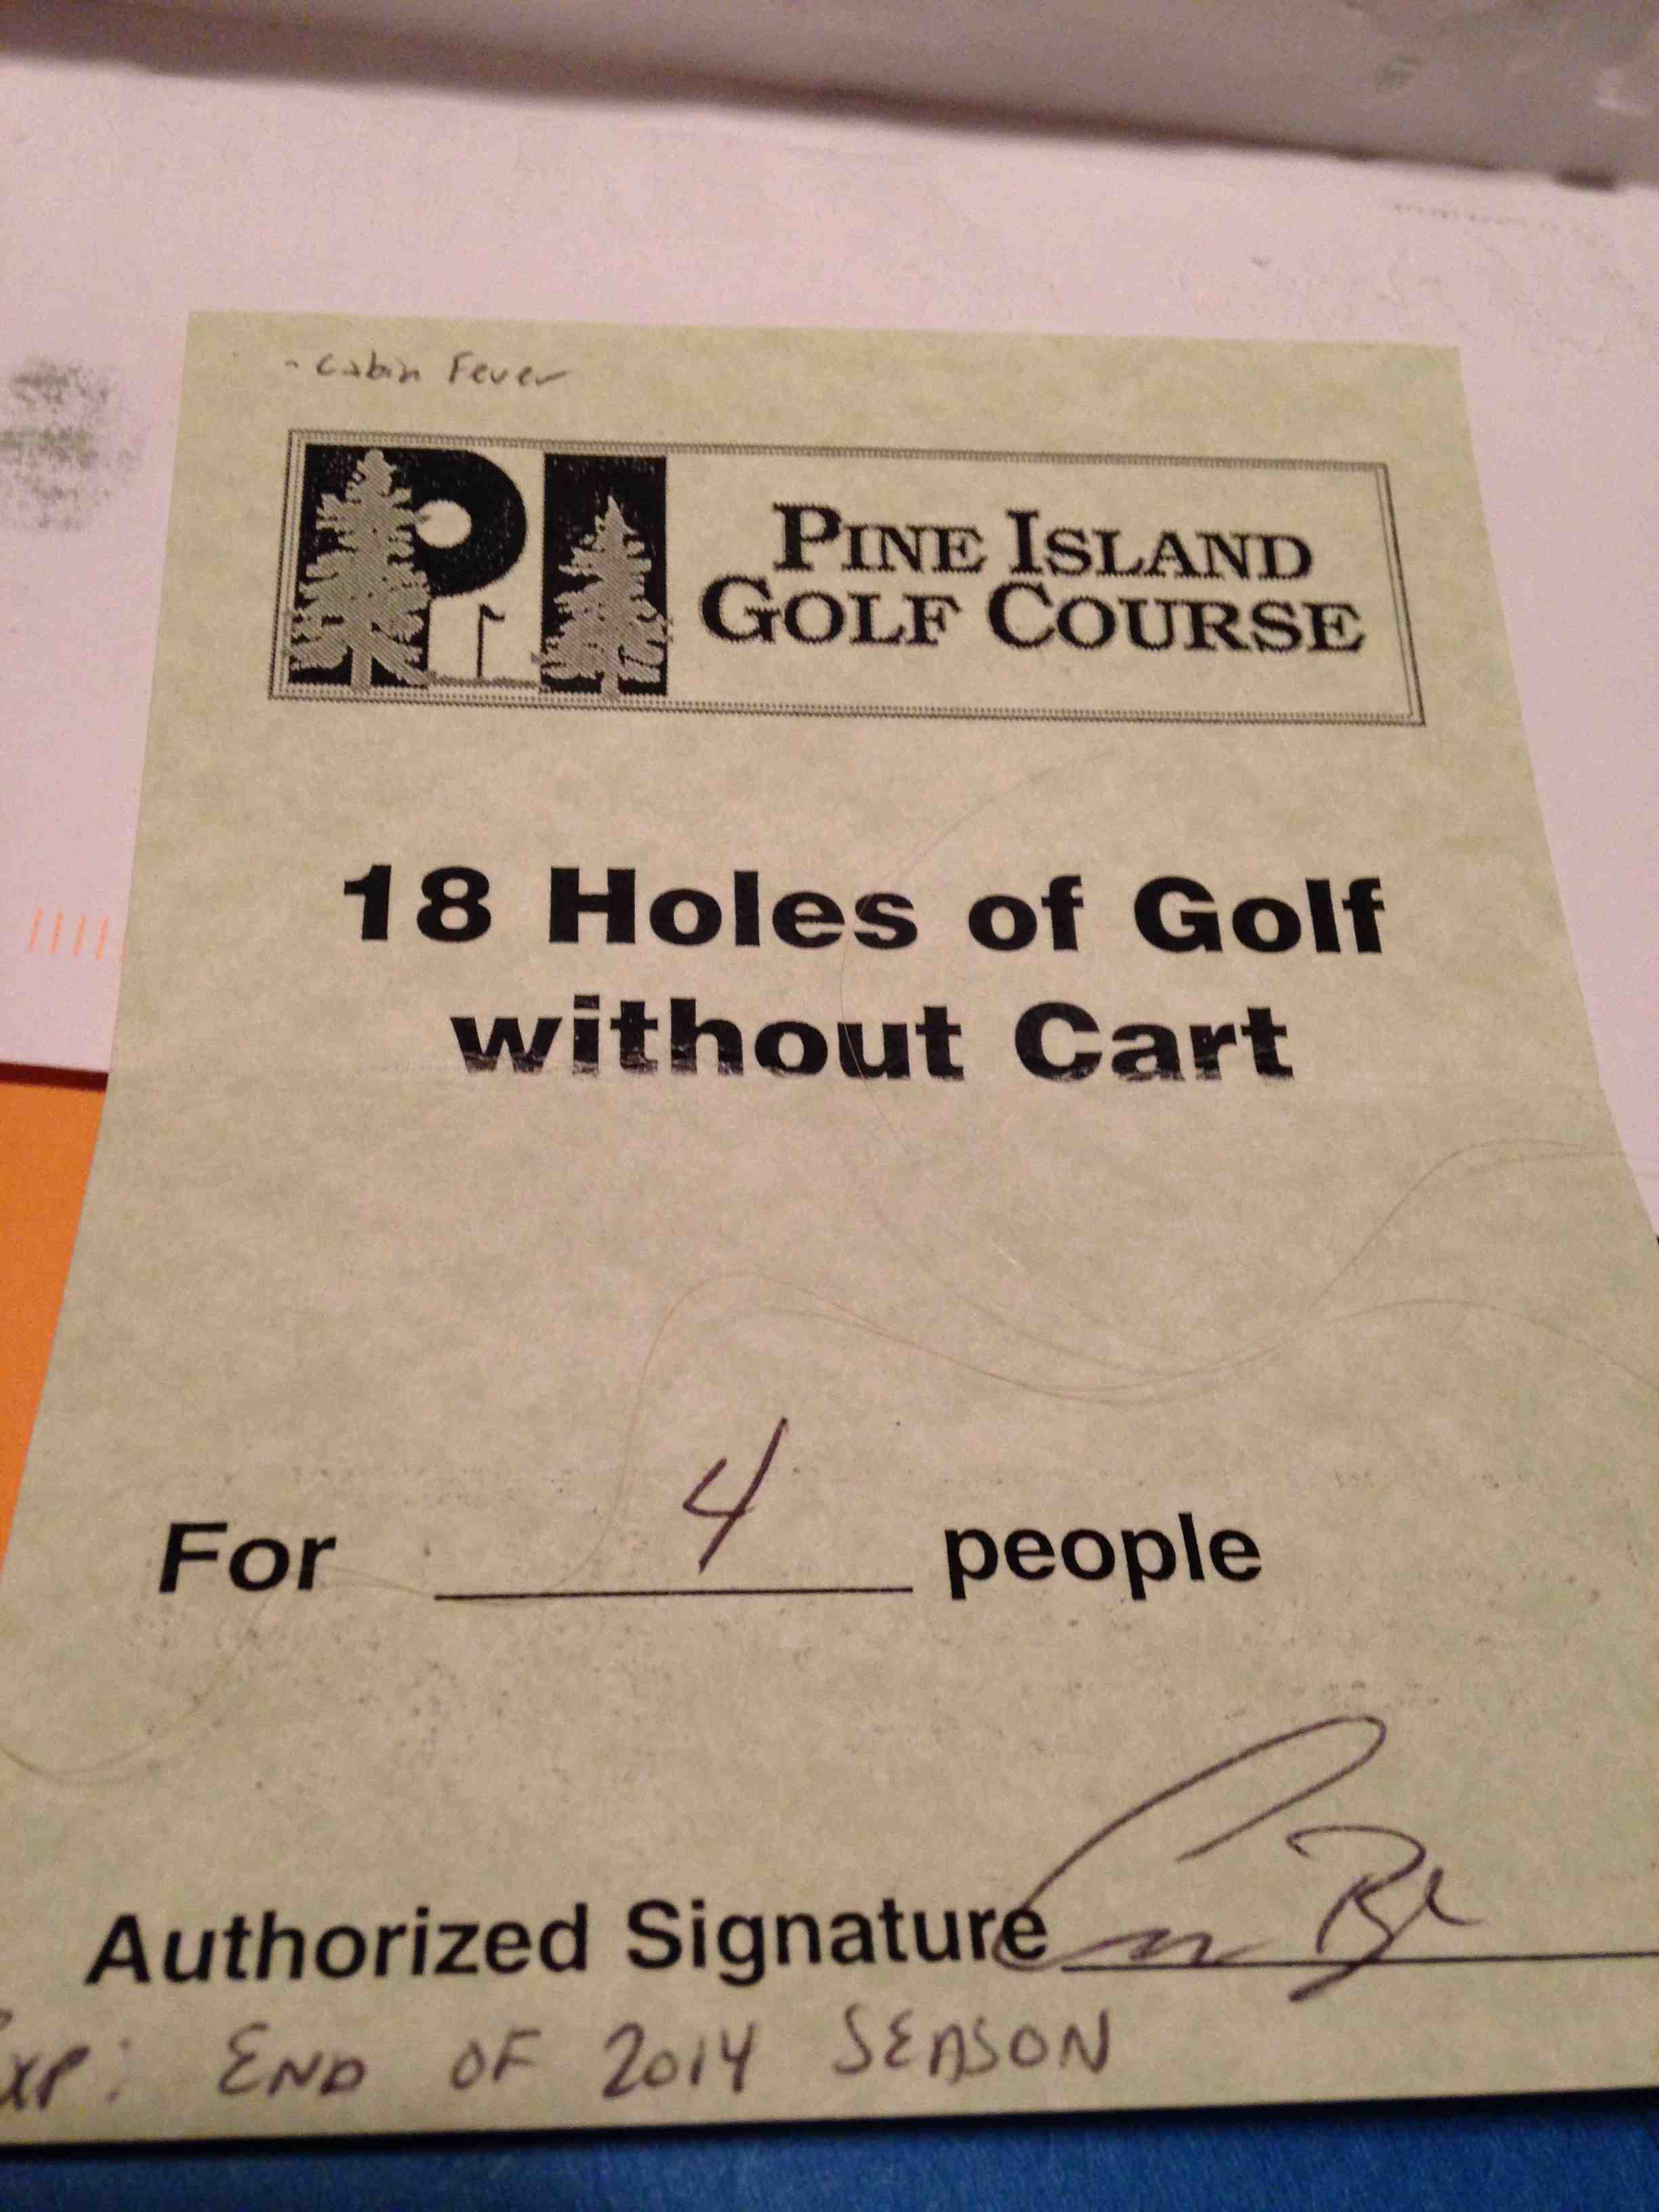 - Cabin Fever
PI
PINE ISLAND
GOLF COURSE
18 Holes of Golf
without Cart
For 4 people
Authorized Signature
EXP: END OF 2014 SEASON